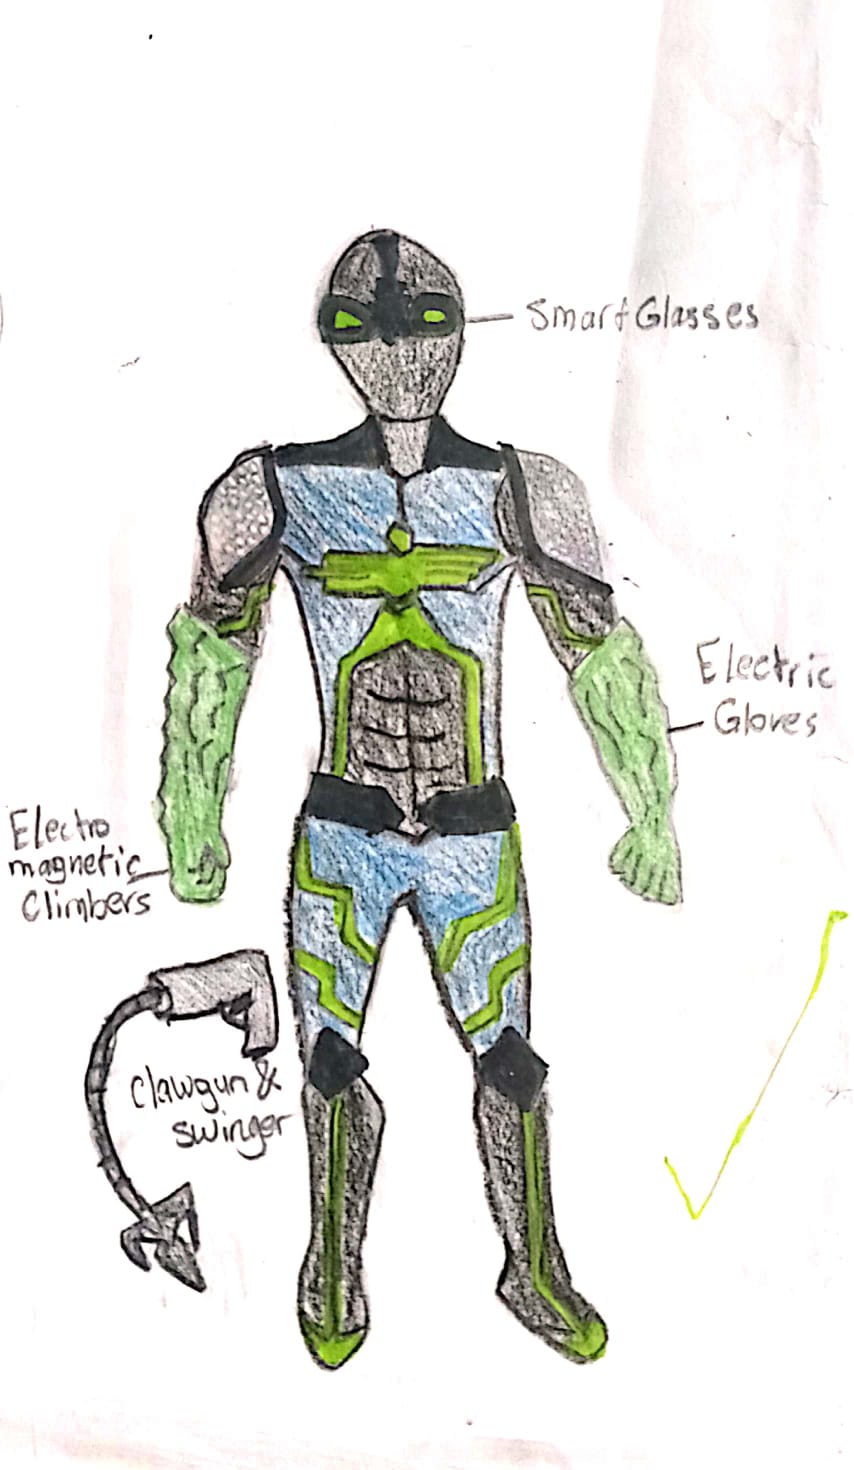 Smart Glasses
Electric
Gloves
Electro
magnetic
Climbers
Clawgun &
swinger